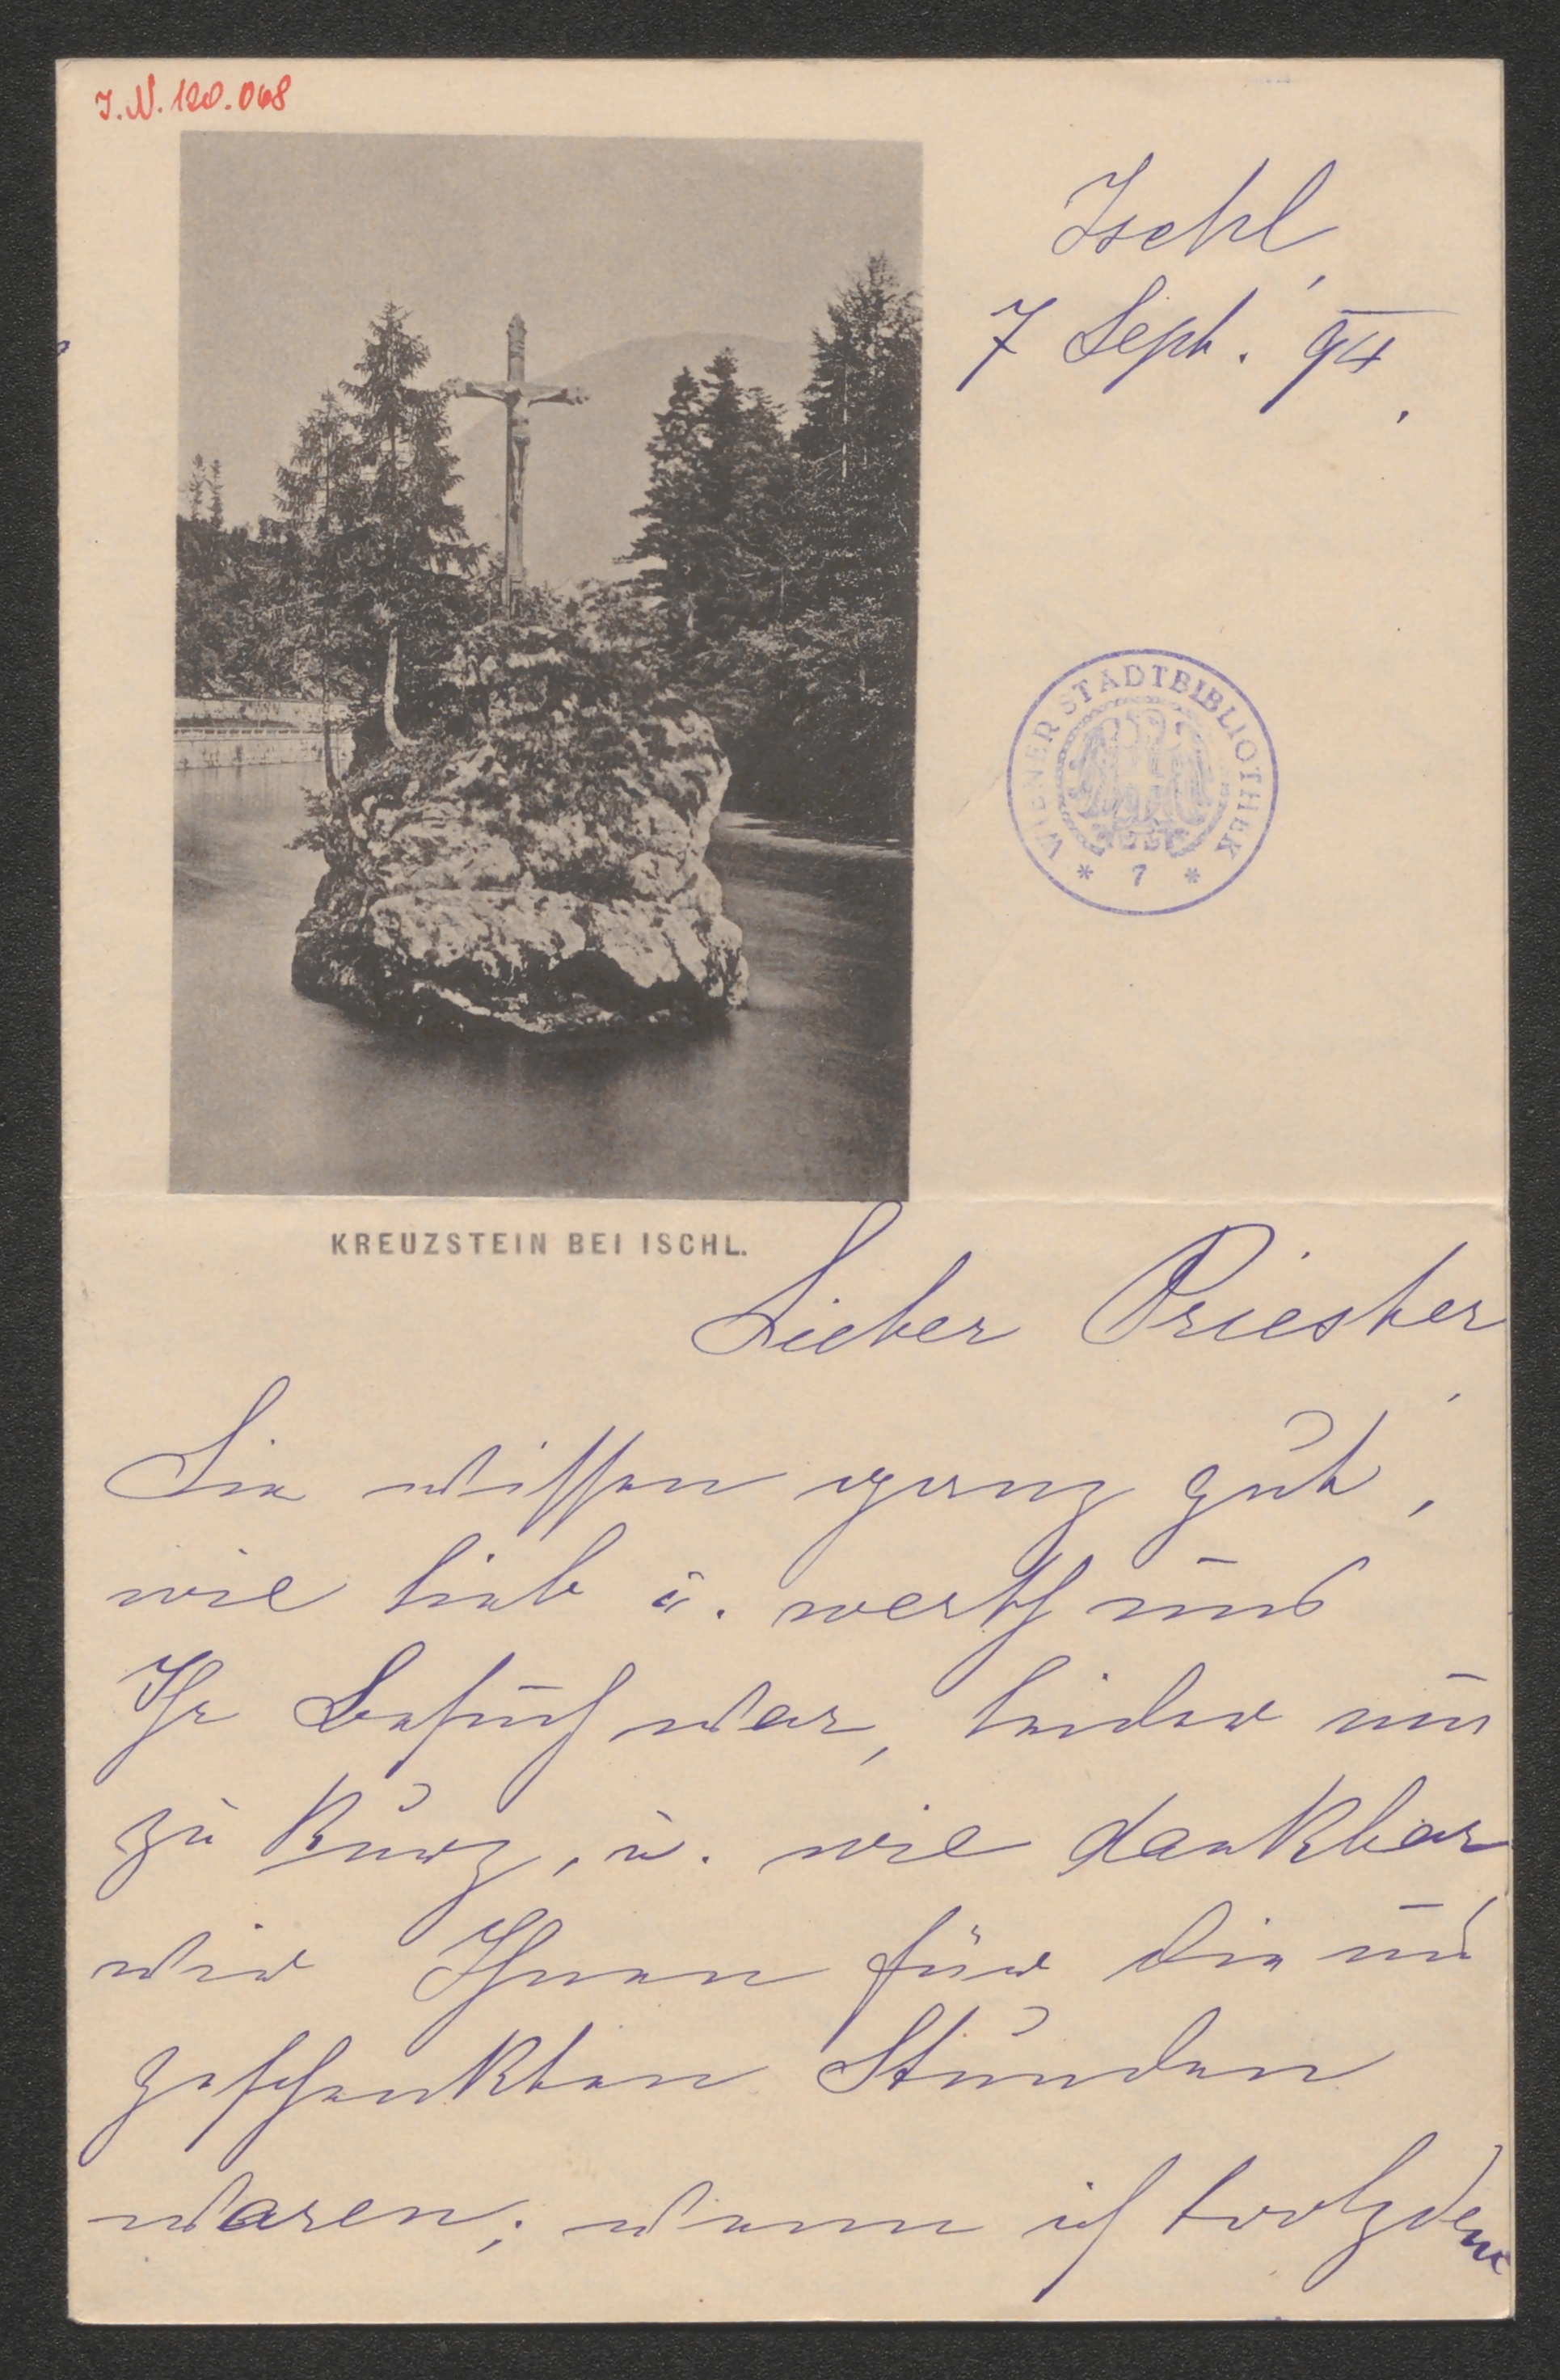 J.N. 120.068
Ischl,
7 Sept. 94.
WIENER STADTBIBLIOTHEK
* 7 *
KREUZSTEIN BEI ISCHL.
Lieber Priester,
Sie wissen ganz gut,
wie lieb u. werth uns
Ihr Besuch war, leider nur
zu kurz, u. wie dankbar
wir Ihnen für die uns
geschenkten Stunden
waren; wenn ich trotzdem